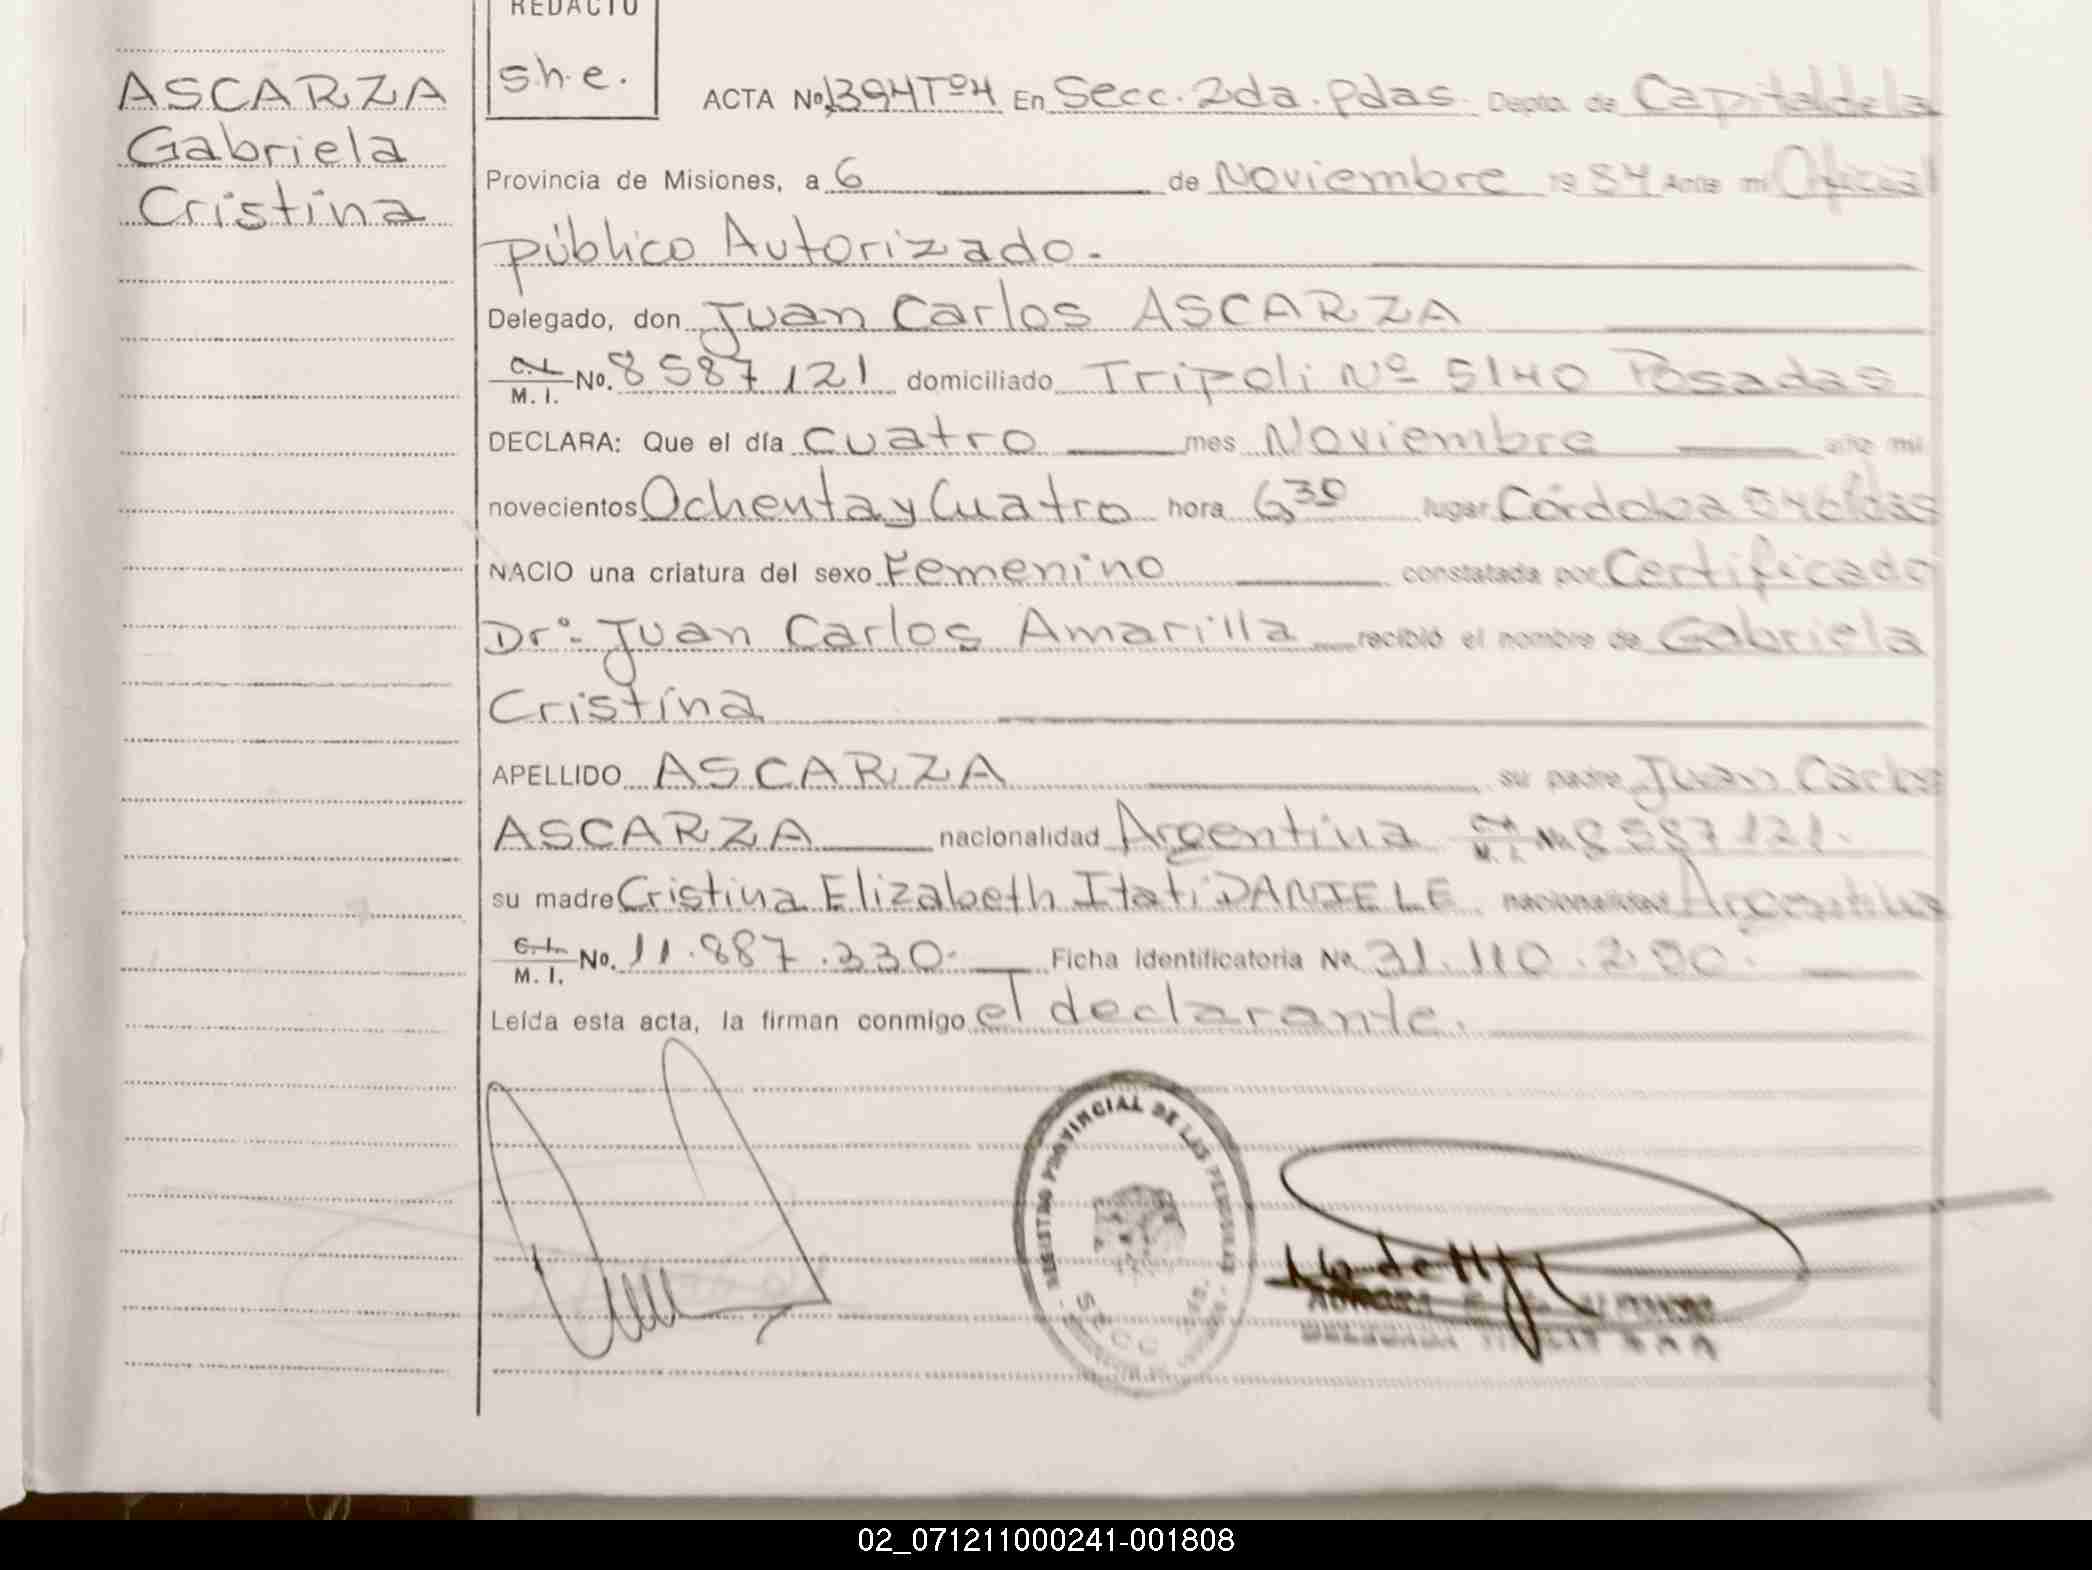 REDACTO
s.h.e.
ASCARZA
Gabriela
Cristina
ACTA No. 1394Tº4 En Secc. 2da. Pdas. Depto. de Capital de la
Provincia de Misiones, a 6 de Noviembre 1984 Ante mi Oficial
público Autorizado.
Delegado, don Juan Carlos ASCARZA
C.I. M.I. No. 8587121 domiciliado Tripoli Nº 5140 Posadas
DECLARA: Que el día cuatro mes Noviembre año mil
novecientos Ochenta y Cuatro hora 6,30 lugar Córdoba Pdas
NACIO una criatura del sexo Femenino constatada por Certificado
Drº. Juan Carlos Amarilla recibió el nombre de Gabriela
Cristina
APELLIDO ASCARZA su padre Juan Carlos
ASCARZA nacionalidad Argentina C.I. M.I. No. 8587121.
su madre Cristina Elizabeth Itati DANIELE nacionalidad Argentina
C.I. M.I. No. 11.887.330. Ficha Identificatoria No. 31.110.200.
Leída esta acta, la firman conmigo el declarante.
REGISTRO PROVINCIAL DE LAS PERSONAS
SECC
DELEGADA
02_071211000241-001808